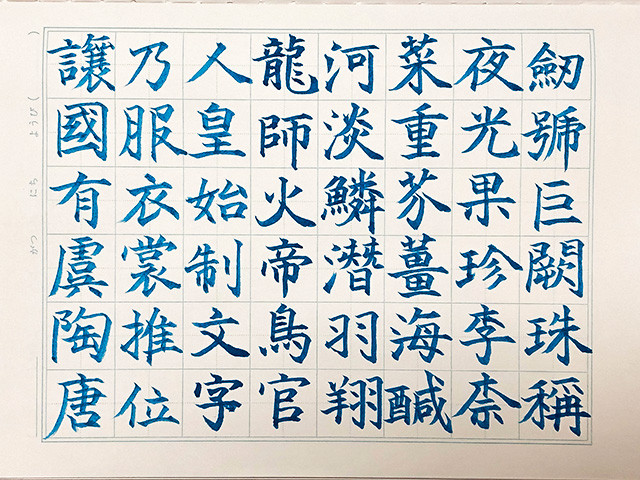 劒號巨闕珠稱
夜光果珍李柰
菜重芥薑海醎
河淡鱗潛羽翔
龍師火帝鳥官
人皇始制文字
乃服衣裳推位
讓國有虞陶唐
がつ にち ( ようび )